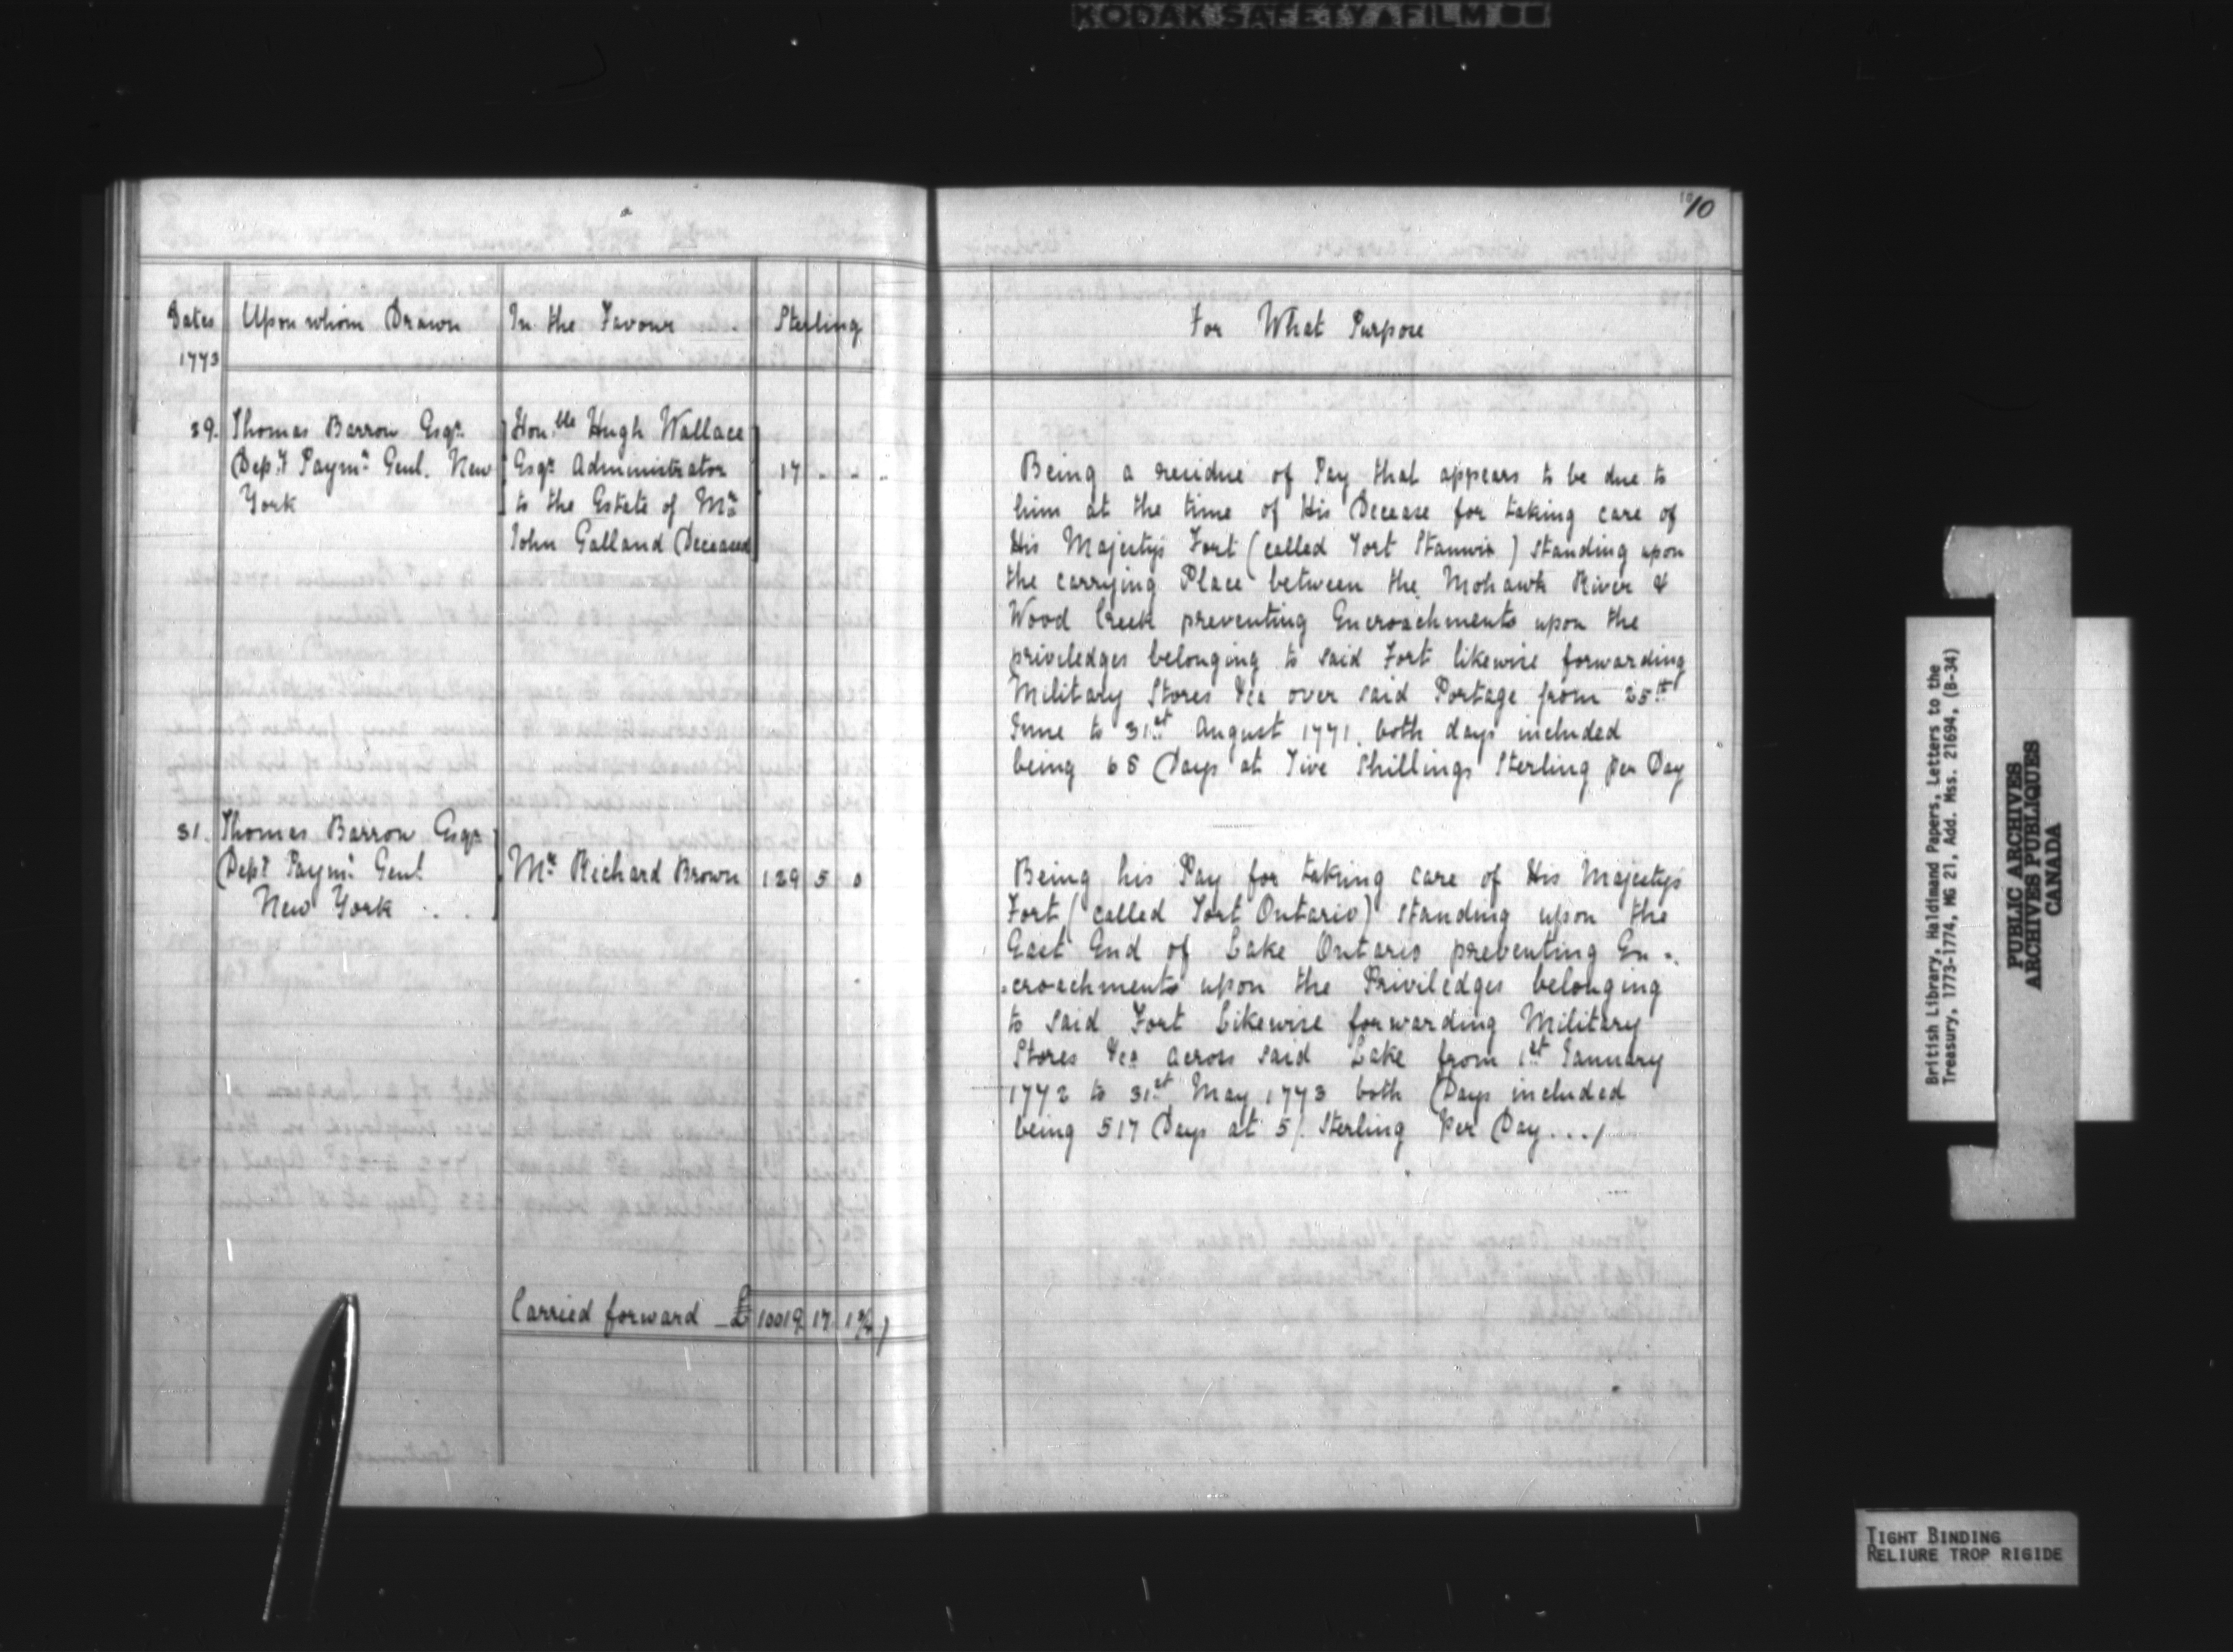 KODAK SAFETY FILM
10
10
Dates
1773
Upon whom Drawn
In the Favour
Sterling
29. Thomas Barron Esqr.
Depy Paymr Genl. New
York
Honble Hugh Wallace
Esqr Administrator
to the Estate of Mr
John Galland Deceased
17 - -
31. Thomas Barron Esqr
Depy Paymr Genl
New York . .
Mr Richard Brown
129 5 0
Carried forward £ 10019 17 1¾
For What Purpose
Being a residue of Pay that appears to be due to
him at the time of His Decease for taking care of
His Majestys Fort (called Fort Stanwix) standing upon
the carrying Place between the Mohawk River &
Wood Creek preventing Encroachments upon the
priviledges belonging to said Fort likewise forwarding
Military Stores &ca over said Portage from 25th
June to 31st August 1771. both days included
being 68 Days at Five Shillings Sterling per Day
Being his Pay for taking care of His Majestys
Fort (called Fort Ontario) standing upon the
East End of Lake Ontario preventing En-
croachments upon the Priviledges belonging
to said Fort Likewise forwarding Military
Stores &ca across said Lake from 1st January
1772 to 31st May 1773 both Days included
being 517 Days at 5/. Sterling Per Day.../
British Library, Haldimand Papers, Letters to the
Treasury, 1773-1774, MG 21, Add. Mss. 21694, (B-34)
PUBLIC ARCHIVES
ARCHIVES PUBLIQUES
CANADA
TIGHT BINDING
RELIURE TROP RIGIDE